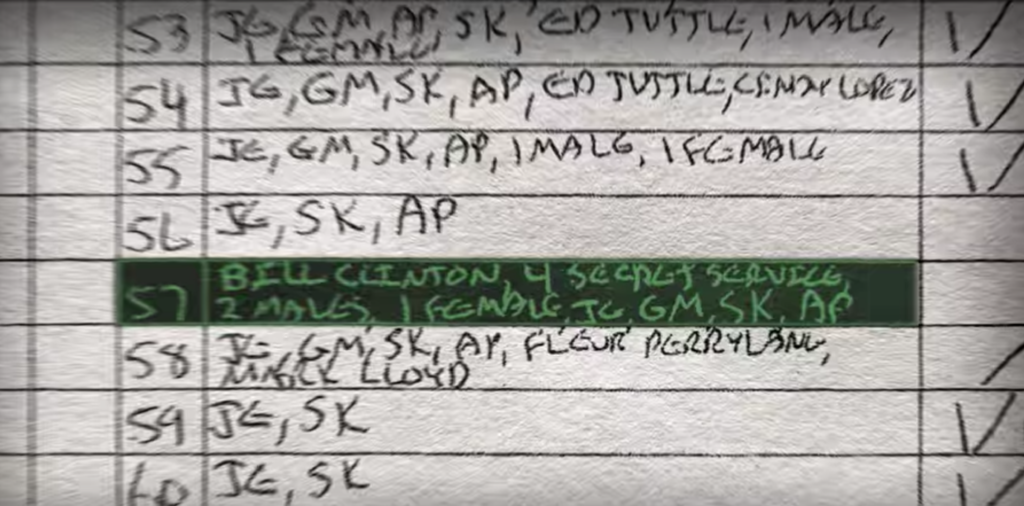 53 JE, GM, AP, SK, ED TUTTLE, 1 MALE,
1 FEMALE
54 JE, GM, SK, AP, ED TUTTLE, CINDY LOPEZ
55 JE, GM, SK, AP, 1 MALE, 1 FEMALE
56 JE, SK, AP
BILL CLINTON, 4 SECRET SERVICE,
57 2 MALES, 1 FEMALE, JE, GM, SK, AP
58 JE, GM, SK, AP, FLEUR PERRYLANG,
LLOYD
59 JE, SK
60 JE, SK